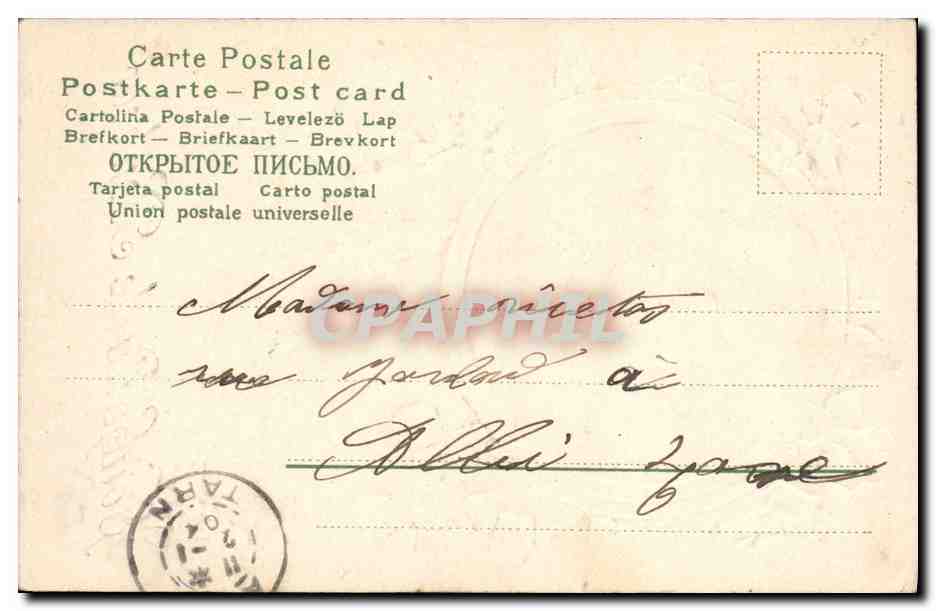 Carte Postale
Postkarte – Post card
Cartolina Postale – Levelezö Lap
Brefkort – Briefkaart – Brevkort
ОТКРЫТОЕ ПИСЬМО.
Tarjeta postal Carto postal
Union postale universelle
Madame
CPAPHIL
rue à
TARN